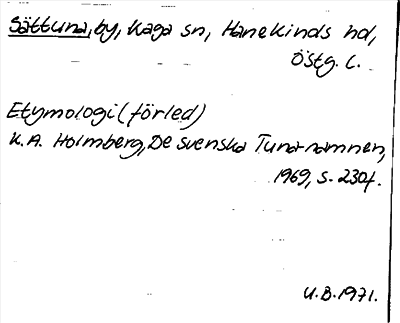 Sättuna, by, Kaga sn, Hanekinds hd,
Östg. l.
Etymologi (förled)
K.A. Holmberg, De svenska Tuna-namnen,
1969, s. 230f.
U.B. 1971.